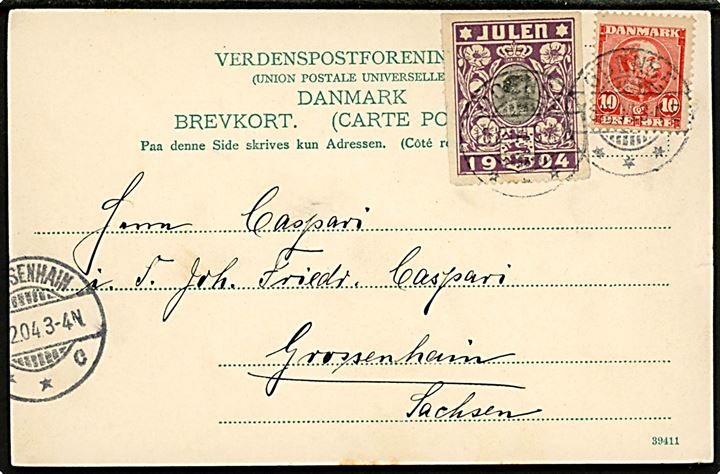 VERDENSPOSTFORENIN
(UNION POSTALE UNIVERSELLE
DANMARK
BREVKORT. (CARTE PO
Paa denne Side skrives kun Adressen. (Côté re
JULEN
1904
DANMARK
10 10
ØRE ØRE
Herrn Caspari
i. F. Joh. Friedr. Caspari
Grossenhain
Sachsen
SENHAIN
2.04 3-4N
C
39411